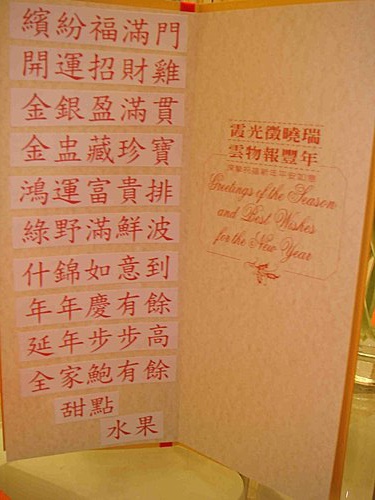 繽紛福滿門
開運招財雞
金銀盈滿貫
金盅藏珍寶
鴻運富貴排
綠野滿鮮波
什錦如意到
年年慶有餘
延年步步高
全家鮑有餘
甜點
水果
霞光徵曉瑞
雲物報豐年
Greetings of the Season
and Best Wishes
for the New Year